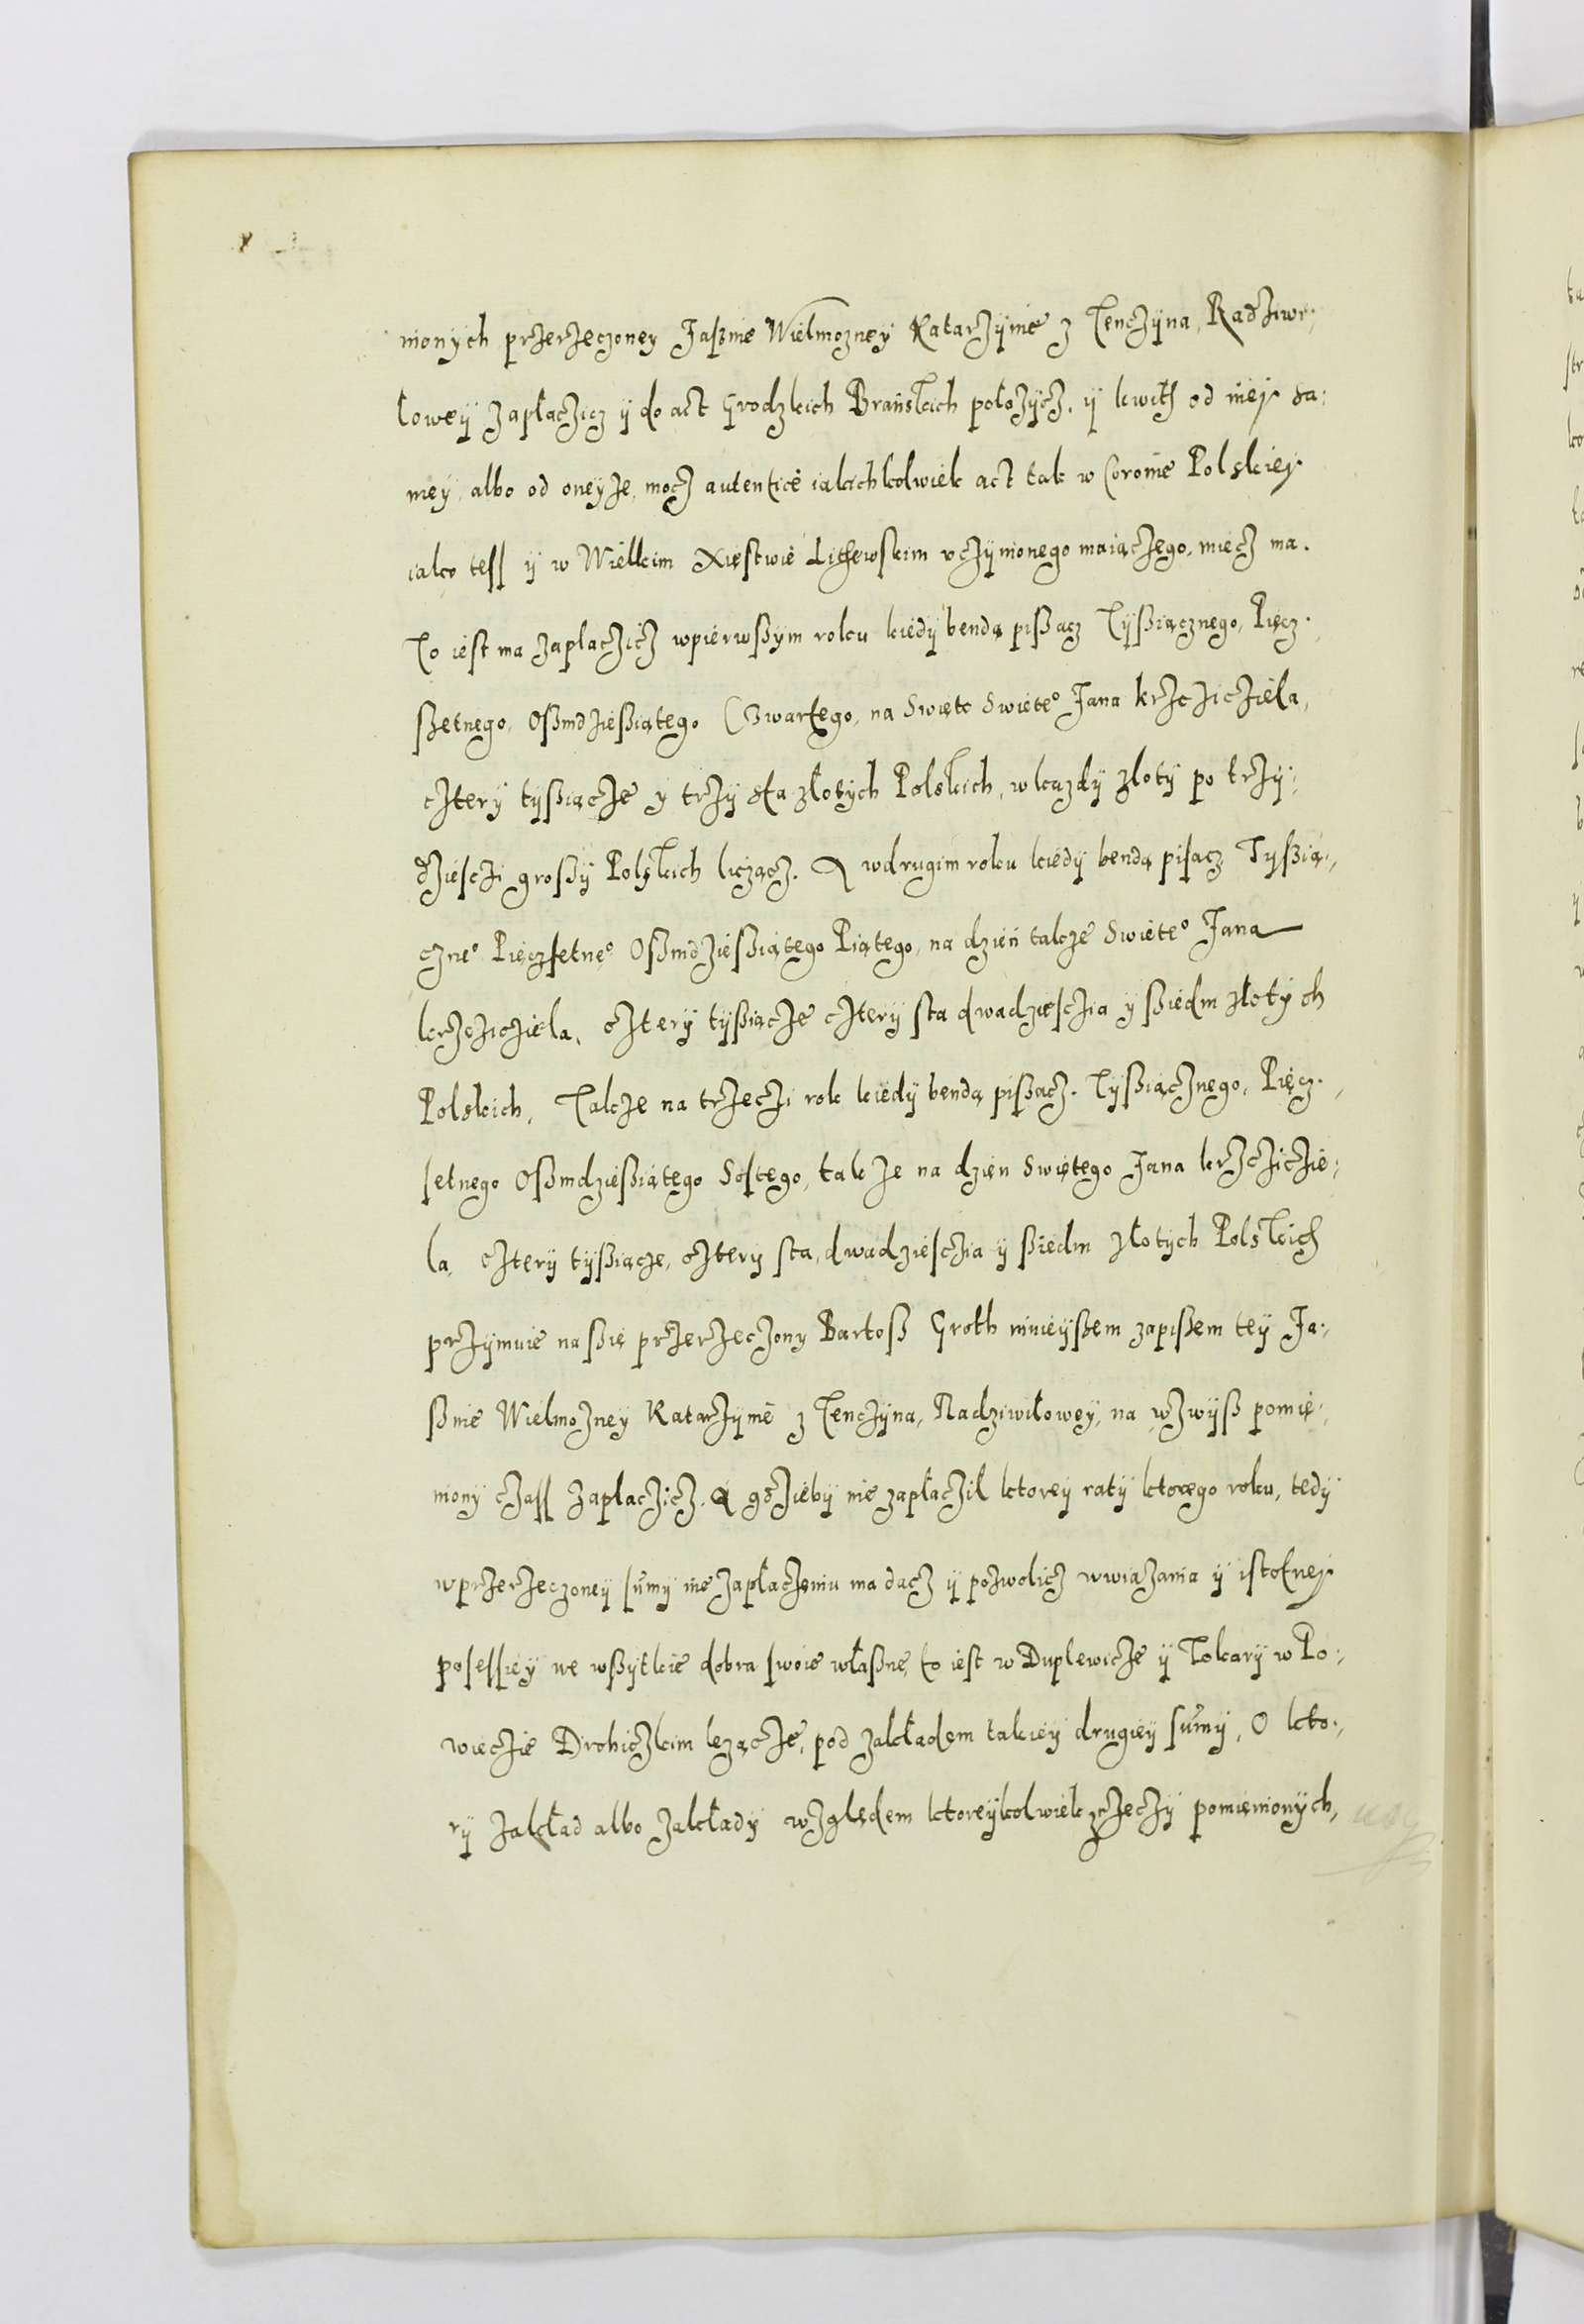 nionych przerzeczoney Jaßnie Wielmozney Katarzynie z Tenczyna, Radziwi:
łowey zapłaczicz y do act Grodzkich Brańskich położycz, y kwith od niey sa:
mey, albo od oneyże, mocz autentice iakichkolwiek act tak w Coronie Polskiey
iako tess y w Wielkim Xięstwie Lithewskim vczynionego maiączego, miecz ma.
To iest ma zaplaczicz wpierwßym roku kiedy bendą pißacz Tyßiącznego, Piącz:
ßetnego, Oßmdzießiątego Czwartego, na Swięto Swięte° Jana krzcziciela,
cztery tyßiącze y trzy sta złotych Polskich, wkazdy złoty po trzy:
dzieści groszy Polskich liczącz. A wdrugim roku kiedy bendą pisacz Tyßią:
czne° Pięczsetne° Oßmdzießiątego Piątego, na dzień takze Swięte° Jana
krzcziciela, cztery tyßiącze cztery sta dwadzieścia y ßiedm złotych
Polskich, Takze na trzeczi rok kiedy bendą pißacz. Tyßiącznego, Pięcz:
setnego Oßmdzießiątego Sostego, takze na dzien Swiętego Jana krzcziczie:
la, cztery tyßiącze, cztery sta, dwadziesczia y ßiedm złotych Polskich
przymuie naßię przerzeczony Bartoß Groth ninieyßem zapißem tey Ja:
ßnie Wielmozney Katarzynie z Tenczyna, Radziwiłowey, na wzwyß pomie:
niony czass zaplaczicz. A gdzieby nie zapłaczil ktorey raty ktorego roku, tedy
wprzerzeczoney sumy nie zapłaczeniu ma dacz y pozwolicz wwiazania y istotney
posessiey we wßytkie dobra swoie własne, to iest w Duplewicze y Tokary w Po:
wieczie Drohiczkim lezącze, pod zakładem takiey drugiey sumy, O kto:
ry zakład albo zakłady względem ktoreykolwiek rzeczy pomienionych,